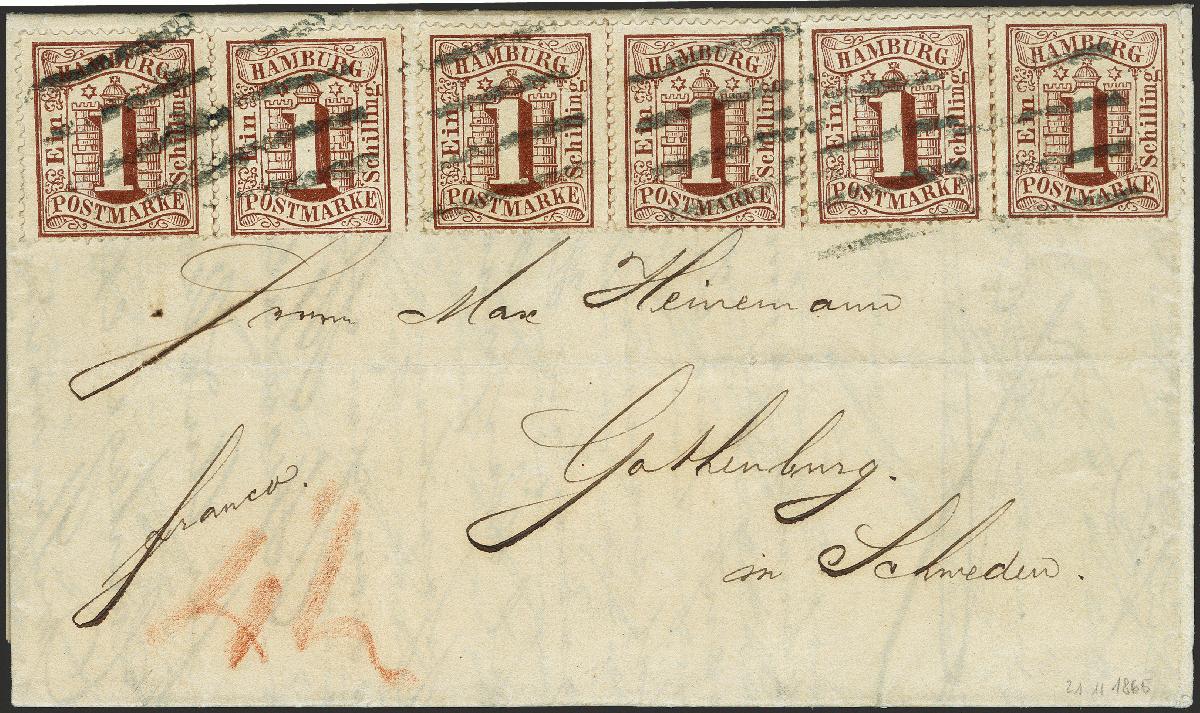 HAMBURG HAMBURG HAMBURG HAMBURG HAMBURG HAMBURG
Ein 1 Schilling Ein 1 Schilling Ein 1 Schilling Ein 1 Schilling Ein 1 Schilling Ein 1 Schilling
POSTMARKE POSTMARKE POSTMARKE POSTMARKE POSTMARKE POSTMARKE
Herrn Max Heinemann
Gothenburg.
franco.
in Schweden.
21 11 1865